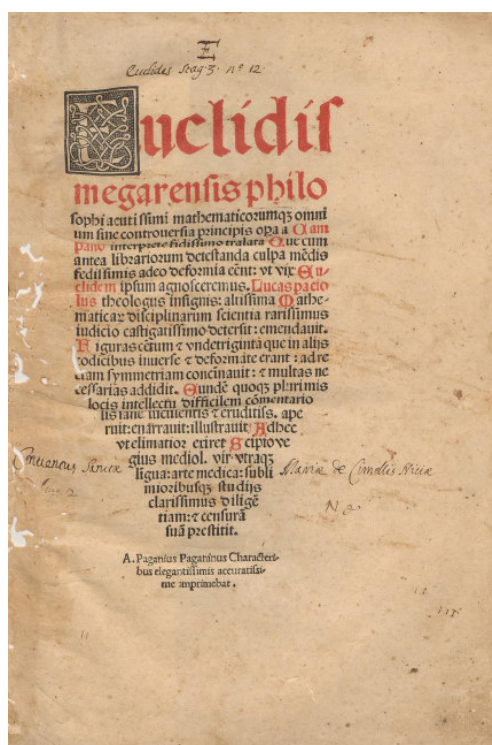 E
Euclides Scag. 3. nº 12.
Euclidis
megarensis philo
sophi acutissimi mathematicorumqꝫ omni
um sine controversia principis opa a Cam
pano interprete fidissimo tralata Que cum
antea librariorum detestanda culpa mẽdis
fedissimis adeo deformia eẽnt: vt vix Eu
clidem ipsum agnosceremus. Lucas pacio
lus theologus insignis: altissima Mathe
maticaꝝ disciplinarum scientia rarissimus
iudicio castigatissimo detersit: emendauit.
Figuras cẽtum ⁊ vndetriginta que in alijs
codicibus inuerse ⁊ deformate erant: ad re
ctam symmetriam concinauit: ⁊ multas ne
cessarias addidit. Eundẽ quoqꝫ plurimis
locis intellectu difficilem cõmentario
lis sane luculentis ⁊ eruditiss. ape
ruit: enarrauit: illustrauit Adhec
vt elimatior exiret Scipio ve
gius mediol. vir vtraqꝫ
ligua: arte medica: subli
mioribusqꝫ studijs
clarissimus diligẽ
tiam: ⁊ censurã
suã prestitit.
Conventus
Mariæ de
Nº 2
A. Paganius Paganinus Characteri-
bus elegantissimis accuratissi-
me imprimebat.